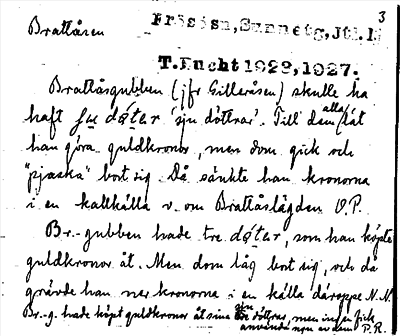 3
Brattåsen
Frösön, Sunnetg, Jtl.
T. Lucht 1922, 1927.
Brattåsgubben (jfr Gilleråsen) skulle ha
haft ſu døter 'sju döttrar'. Till dem alla låt
han göra guldkronor, men dom gick och
"pjaska" bort sig. Då sänkte han kronorna
i en kallkälla v. om Brattåslägden O.P.
Br.-gubben hade tre døter, som han köpte
guldkronor åt. Men dom låg bort sig, och då
grävde han ner kronorna i en källa däroppe N.N.
Br.-g. hade köpt guldkronor åt sina döttrar, men ingen fick
använda dem P.R.